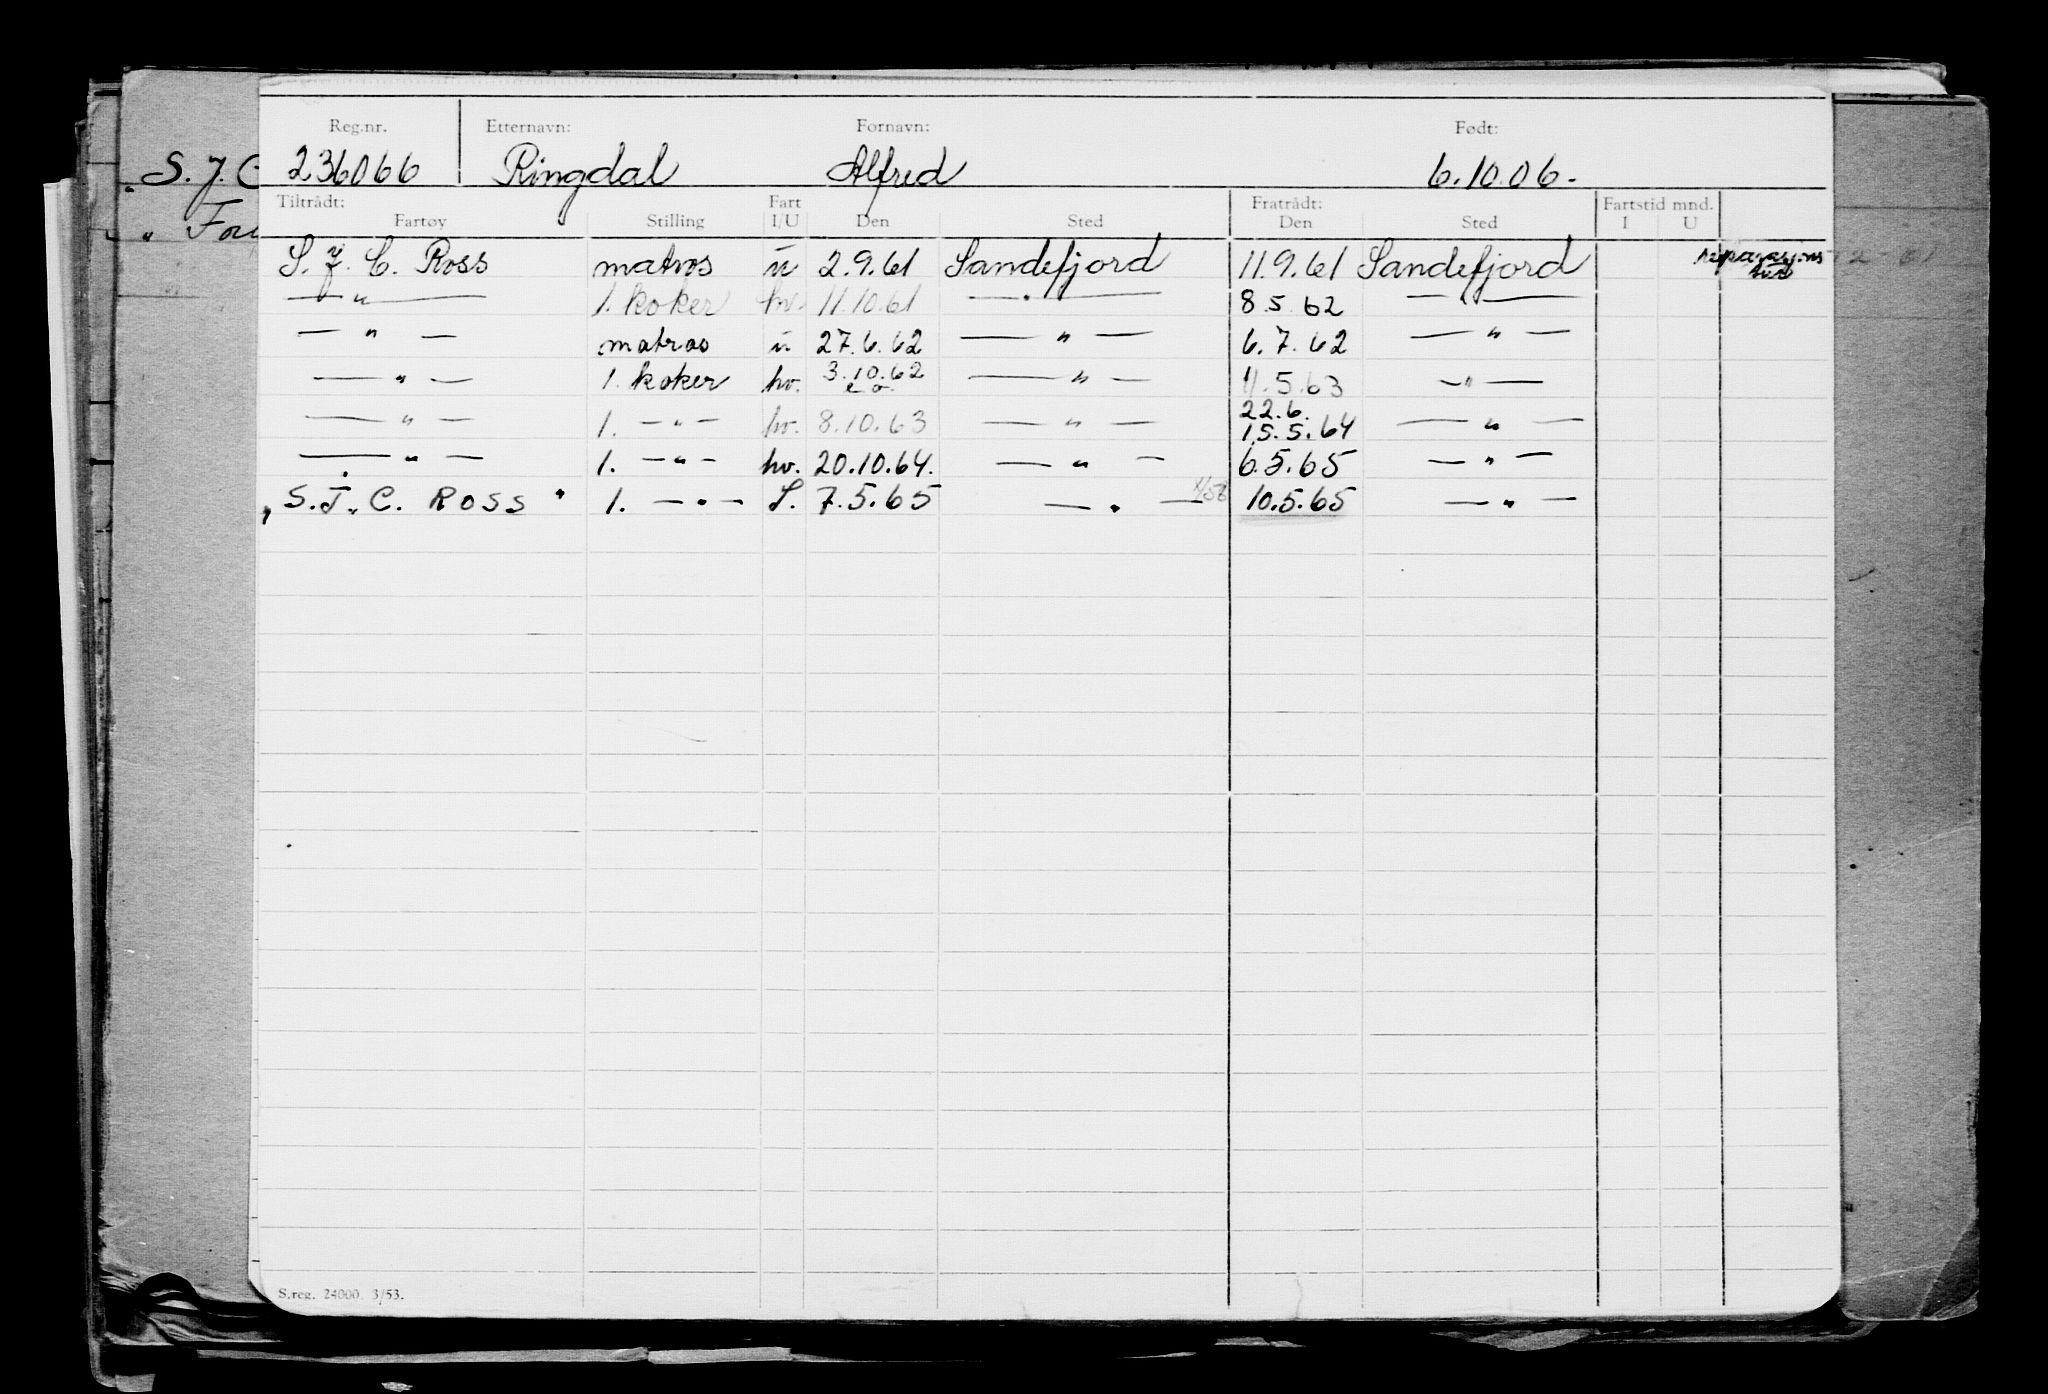 Reg.nr. Etternavn: Fornavn: Født:
" S. J. C 236066 Ringdal Alfred 6.10.06.
Tiltrådt: Fart Fratrådt: Fartstid mnd.
Fartøy Stilling I/U Den Sted Den Sted I U
S. J. C. Ross matros u 2.9.61 Sandefjord 11.9.61 Sandefjord reparasjons
— " — 1. koker hv. 11.10.61 — " — 8.5.62 — " —
— " — matros u 27.6.62 — " — 6.7.62 — " —
— " — 1. koker hv. 3.10.62 — " — 11.5.63 — " —
22.6.
— " — 1. — " — hv. 8.10.63 — " — 15.5.64 — " —
— " — 1. — " — hv. 20.10.64. — " — 6.5.65 — " —
"S. J. C. ROSS" 1. — " — S. 7.5.65 — " — 10.5.65 — " —
S.reg. 24000. 3/53.